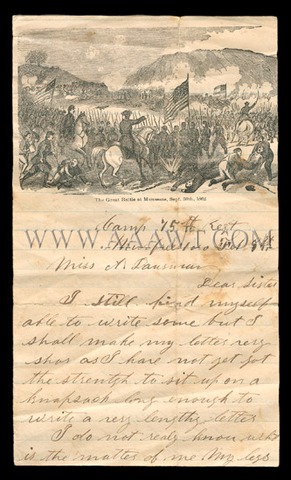 The Great Battle at Manassas, Sept. 30th, 1862
Camp 75th Regt
WWW.
Miss A
Dear Sister
I still find myself
able to write some but I
shall make my letter very
shor as I have not yet got
the strength to sit up on a
knapsack long enough to
write a very lengthy letter
I do not realy know what
is the matter of me My legs